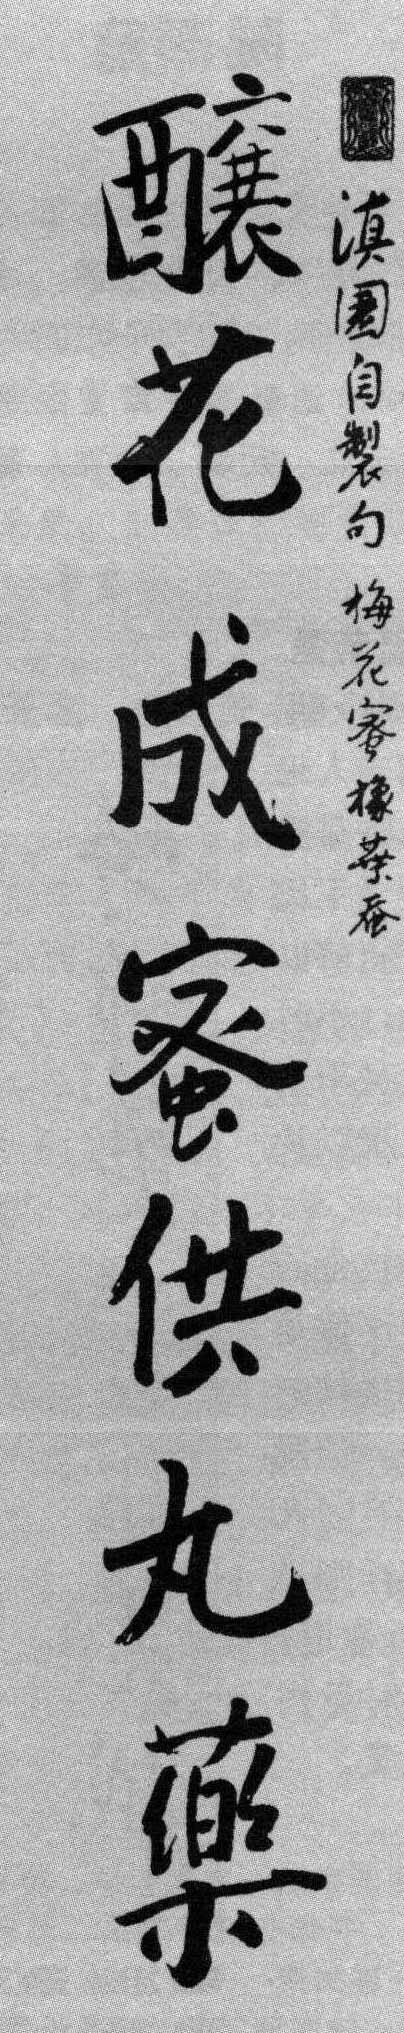 滇園自製句 梅花蜜橡葉蚕
釀花成蜜供丸藥